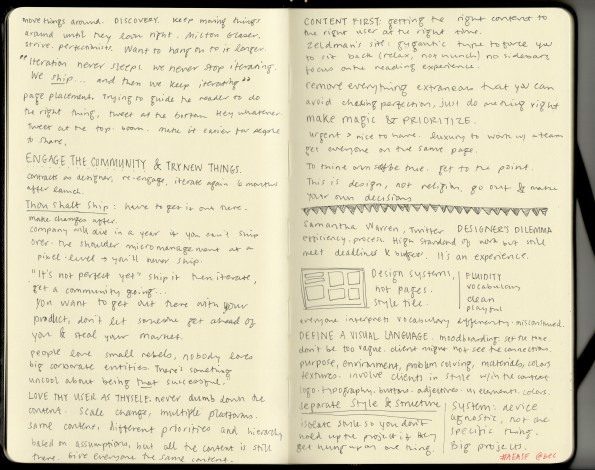 move things around. DISCOVERY. keep moving things
around until they look right. Milton Glaser.
strive. perfectionists. Want to hang on to it longer.
"Iteration never sleeps. we never stop iterating.
We ship... and then we keep iterating"
page placement. Trying to guide the reader to do
the right thing, tweet at the bottom. Hey whatever.
Tweet at the top. boom. make it easier for people
to share.
ENGAGE THE COMMUNITY & TRY NEW THINGS.
contracts as designer, re-engage, iterate again 10 months
after launch.
Thou shalt ship: have to get it out there.
make changes after.
company will die in a year if you can't ship
over-the-shoulder micromanagement at a
pixel-level → you'll never ship.
"It's not perfect yet" ship it then iterate,
get a community going...
you want to get out there with your
product, don't let someone get ahead of
you & steal your market.
people love small rebels, nobody loves
big corporate entities. There's something
uncool about being that successful.
LOVE THY USER AS THYSELF: never dumb down the
content. Scale change, multiple platforms.
same content, different priorities and hierarchy
based on assumptions, but all the content is still
there. Give everyone the same content.
CONTENT FIRST: getting the right content to
the right user at the right time.
Zeldman's site: gigantic type to force you
to sit back (relax, not munch) no sidebars
focus on the reading experience.
remove everything extraneous that you can
avoid cheating perfection, just do nothing right
make magic & PRIORITIZE.
urgent > nice to have. luxury to work w/ a team
get everyone on the same page.
To thine own self be true. get to the point.
This is design, not religion, go out & make
your own decisions
Samantha Warren, Twitter DESIGNER'S DILEMMA
efficiency. process. High standard of work but still
meet deadlines & budget. It's an experience.
Design systems,
not pages.
style tile.
FLUIDITY
vocabulary
clean
playful
everyone interprets vocabulary differently. miscommunicated.
DEFINE A VISUAL LANGUAGE. moodboarding. set the tone.
don't be too vague. client might not see the connection.
purpose, environment, problem solving, materials, colors
textures. involve clients in style w/in the content
logo. typography. buttons. adjectives. ui elements. colors.
separate style & structure
isolate style so you don't
hold up the project if they
get hung up on one thing.
system: device
agnostic, not one
specific thing.
Big projects.
#AEASF @GCS